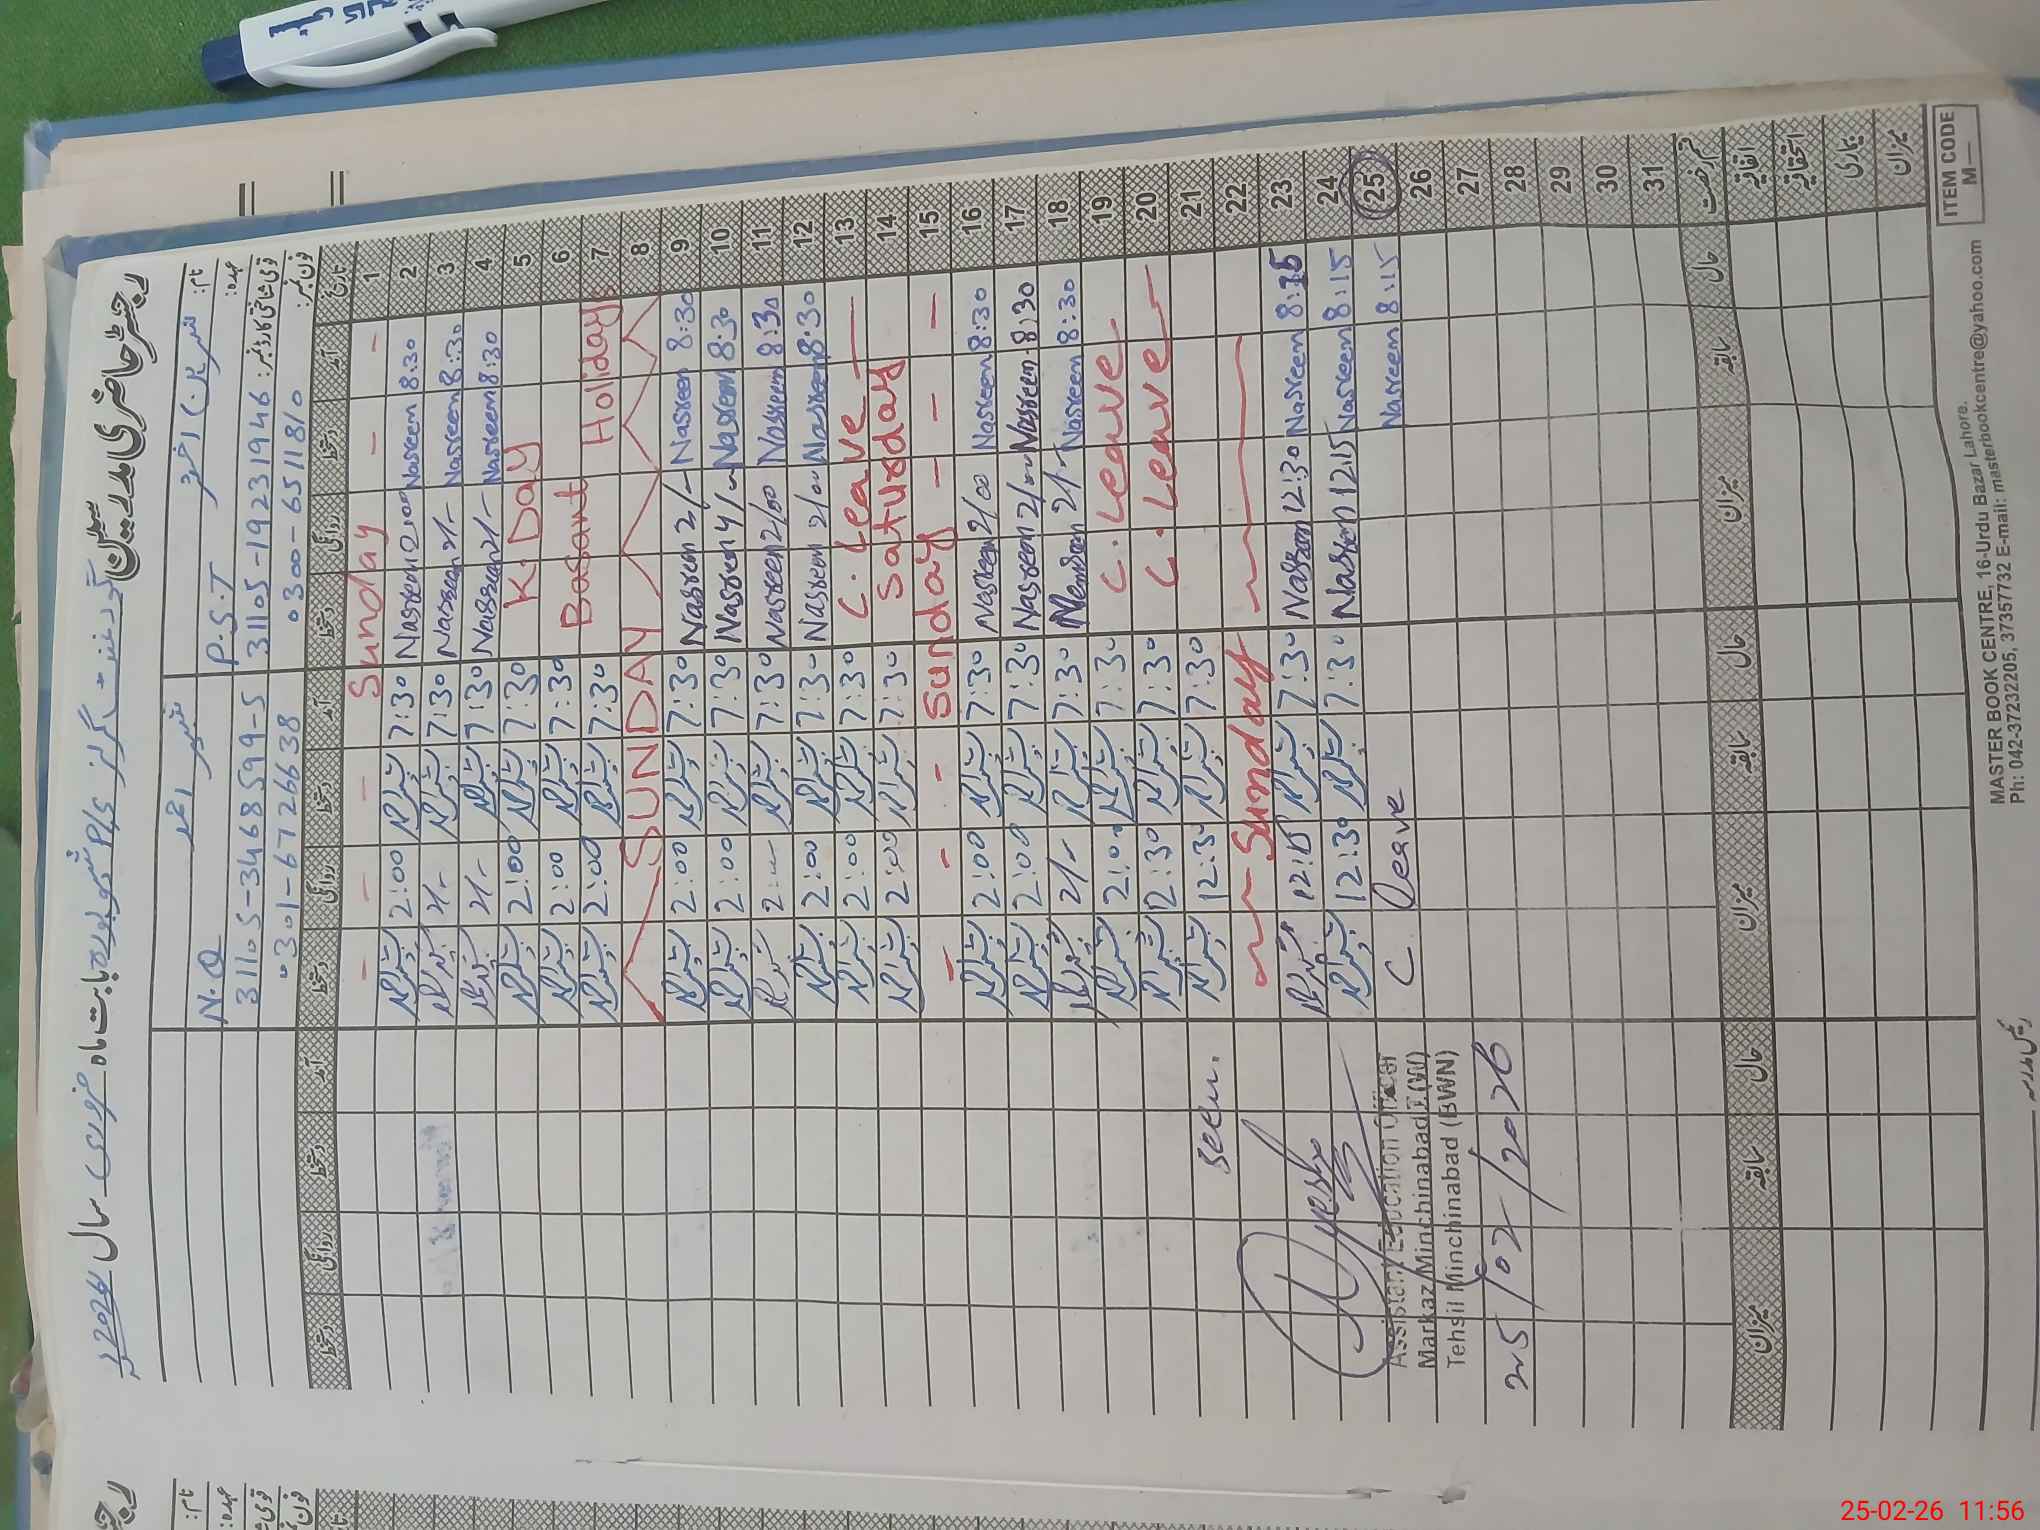 رجسٹر حاضری مدرسین گورنمنٹ گرلز P/S بابت ماہ فروری سال 2026
نام: نسرین اختر
عہدہ: P.S.T N.Q
قومی شناختی کارڈ نمبر: 31105-1923194-6 31105-3468599-5
فون نمبر: 0300-6511810 0301-6726638
تاریخ آمد دستخط روانگی دستخط آمد دستخط روانگی دستخط آمد دستخط روانگی دستخط
1 - - Sunday - - -
2 8:30 Nasreen 2:00 Nasreen 7:30 2:00
3 8:30 Nasreen 2/- Nasreen 7:30 2/-
4 8:30 Nasreen 2/- Nasreen 7:30 2/-
5 K.Day 7:30 2:00
6 Basant 7:30 2:00
7 Holidays 7:30 2:00
8 SUNDAY
9 8:30 Nasreen 2/- Nasreen 7:30 2:00
10 8:30 Nasreen Nasreen 7:30 2:00
11 8:30 Nasreen 2/00 Nasreen 7:30 2:00
12 8:30 Nasreen 2/00 Nasreen 7:30 2:00
13 C.Leave 7:30 2:00
14 Saturday 7:30 2:00
15 - - - Sunday - - -
16 8:30 Nasreen 2/00 Nasreen 7:30 2:00
17 8:30 Nasreen 2/00 Nasreen 7:30 2:00
18 8:30 Nasreen 2/- 7:30 2/-
19 C.Leave 7:30 2:00
20 C.Leave 7:30 12:30
21 7:30 12:30
22 Sunday
23 Nasreen 12:30 Nasreen 7:30
24 8:15 Nasreen 12:15 Nasreen 7:30 12:30
25 8:15 Nasreen C. leave
26
27
28
29
30
31
Seen.
Ayesha
Assistant Education Officer
Markaz Minchinabad I (W)
Tehsil Minchinabad (BWN)
25/02/2026
قسم رخصت حال سابقہ میزان حال سابقہ میزان حال سابقہ میزان
اتفاقیہ
استحقاقیہ
بیماری
میزان
ITEM CODE
M—
MASTER BOOK CENTRE, 16-Urdu Bazar Lahore.
Ph: 042-37232205, 37357732 E-mail: masterbookcentre@yahoo.com
نام:
عہدہ:
25-02-26 11:56